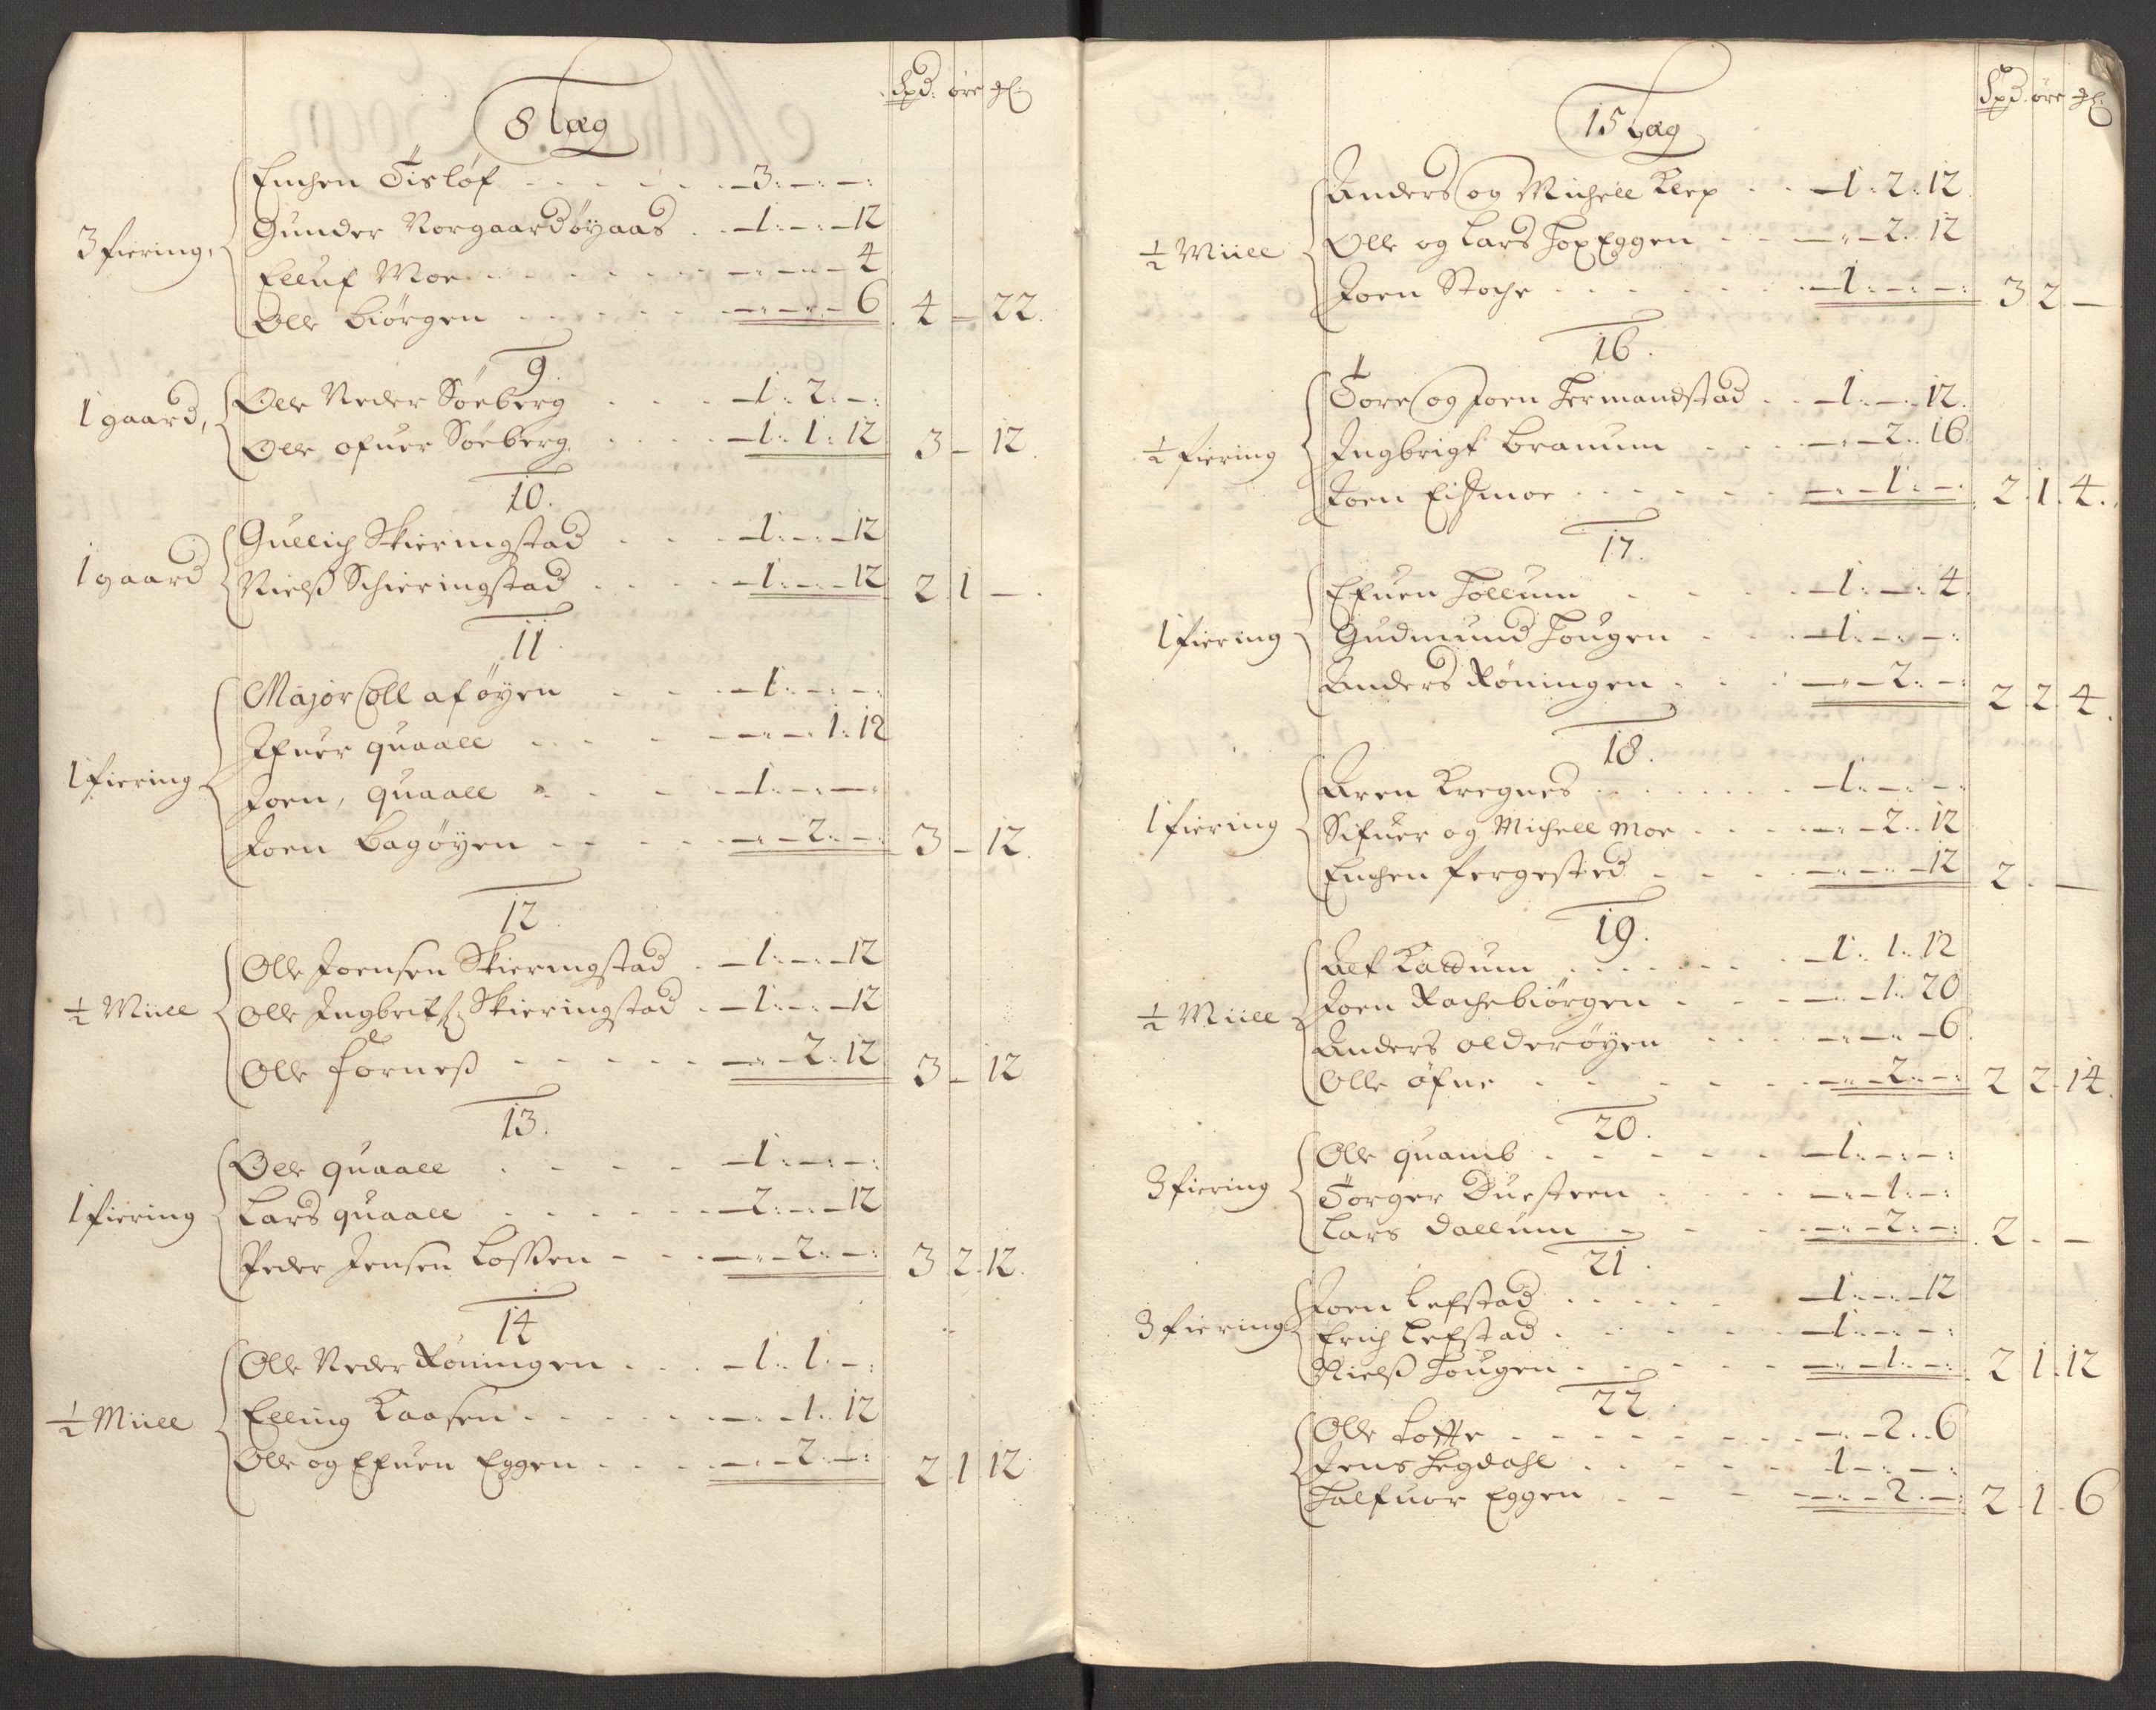 Spd. øre ₰
8 Læg
3 fiering,
Enchen Tisløf - - - 3: - : - :
Gunder Norgaardøyaas . . - 1: - : - 12
Elluf Moe - - - - 4
Olle Biørgen - - - - 6 4 - 22.
9.
1 gaard,
Olle Neder Søeberg . . . - 1: 2: - :
Olle ofuer Søeberg . . . - 1: 1: 12 3 - 12.
10.
1 gaard
Gullich Skieringstad . . . - 1: - : - 12
Nielß Schieringstad . . . - 1: - : - 12 2 1 - .
11.
1 fiering
Major Coll af øyen . . . - 1: - : - :
Ifuer quaall . . . - 1: 12
Joen, quaall . . . - 1: - : - :
Joen Bagøyen - - - 2: - : 3 - 12.
12
½ Miill
Olle Joensen Skieringstad . - 1: - : - 12
Olle Ingbrits: Skieringstad . - 1: - : - 12
Olle Forneß - - - 2: 12 3 - 12
13.
1 fiering
Olle quaall . . . - 1: - : - :
Lars quaall . . . - 2: - : - 12
Peder Jensen Loßen - - - 2: - : 3 2. 12.
14
½ Miill
Olle Neder Røningen . . . - 1: 1: - :
Elling Kaasen . . . - 1: 12
Olle og Efuen Eggen . . . - 2: - : 2 1 12
Spd. øre ₰
15 Læg
½ Miill
Anders og Michell Klep . . - 1: 2: 12
Olle og Lars HopEggen - - - 2: 12
Joen Stoche . . . - 1: - : - : 3 2 -
16.
½ fiering
Tore og Joen Hermandstad . . - 1: - : 12.
Ingbrigt Branum . . . - 2: 16
Joen Eidsmoe . . . - 1: - : 2. 1. 4.
17.
1 fiering
Efuen Hollum . . . - 1: - : 4
Gudmund Hougen . . . - 1: - : - :
Anders Røningen . . . - 2: - : 2 2. 4.
18.
1 fiering
Aren Kregnes . . . - 1: - : - :
Sifuer og Michell Moe . . . - 2: 12
Enchen Fergestad . . . - 12 2. -
19.
½ Miill
Alf Kaldum . . . - 1: 1: 12
Joen Rachebiørgen . . . - 1: 20
Anders olderøyen . . . - 6.
Olle øfne . . . - 2: - : 2 2. 14.
20.
3 fiering
Olle quamb . . . - 1: - : - :
Torger Duesteen . . . - 1: - :
Lars Dallum - - - 2: - : 2. -
21.
3 fiering
Joen Lefstad . . . - 1: - : 12
Erich Lefstad . . . - 1: - : - :
Nielß Hougen . . . - 1: - : 2 1. 12
22
Olle Lofte . . . - 2: 6
Jens Hegdahl . . . 1 - : - :
Halfuor Eggen - - - 2: - : 2. 1. 6